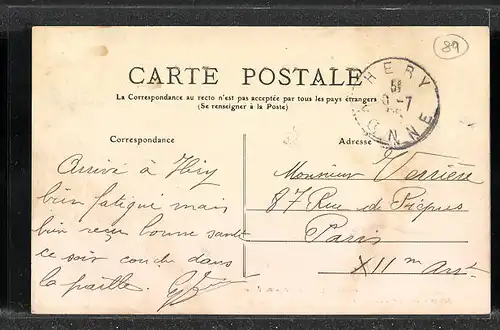 89
CARTE POSTALE
La Correspondance au recto n'est pas acceptée par tous les pays étrangers
(Se renseigner à la Poste)
HERY
YONNE
Correspondance
Adresse
Arrivé à Héry
bien fatigué mais
bien reçu bonne santé
ce soir couche dans
la paille.
Monsieur Verrière
87 Rue de Picpus
Paris
XII m arrt